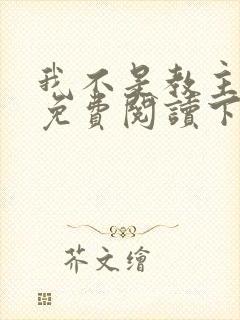 我不是教主
免費閱讀下
芥文繪